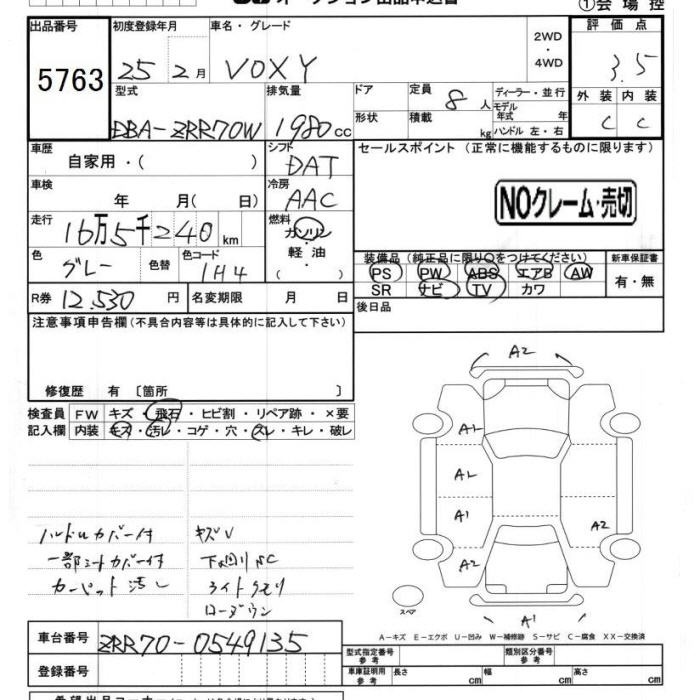 ①会 場 控
出品番号
初度登録年月
車名・グレード
評 価 点
5763
25 2月
VOXY
2WD
・
4WD
3.5
型式
排気量
ドア
定員
8 人
ディーラー・並行
モデル
年式 年
外 装 内 装
DBA-ZRR70W
1980cc
形状
積載
kg
ハンドル 左・右
C C
車歴
自家用・( )
シフト
DAT
セールスポイント (正常に機能するものに限ります)
車検
年 月( 日)
冷房
AAC
NOクレーム・売切
走行
16万5千240km
燃料
ガソリン
・
軽 油
・
( )
色
グレー
色替
色コード
1H4
装備品 (純正品に限り○をつけてください)
新車保証書
PS PW ABS エアB AW
SR ナビ TV カワ
有・無
R券 12.530 円
名変期限 月 日
後日品
注意事項申告欄 (不具合内容等は具体的に記入して下さい)
修復歴 有 〔箇所 〕
検査員 FW キズ・飛石・ヒビ割・リペア跡・×要
記入欄 内装 キズ・汚レ・コゲ・穴・スレ・キレ・破レ
A2
A1
A1
A1
A2
A2
A1
スペア
ハンドルカバー付 キズV
一部シートカバー付 下回りSC
カーペット汚レ ライトクモリ
ローダウン
A-キズ E-エクボ U-凹み W-補修跡 S-サビ C-腐食 XX-交換済
車台番号 ZRR70-0549135
型式指定番号
参考
類別区分番号
参考
登録番号
車庫証明用
参考
長さ cm
幅 cm
高さ cm